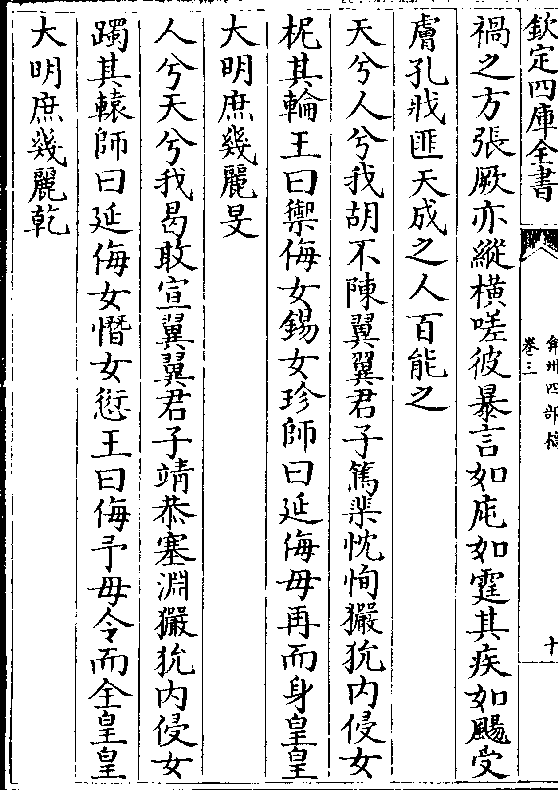 欽定四庫全書
弇州四部稿
卷三
十
禍之方張厥亦縱橫嗟彼暴言如虎如霆其疾如颺受
膚孔戕匪天成之人百能之
天兮人兮我胡不陳翼翼君子篤棐忱恂玁狁内侵女
柅其輪王曰禦侮女錫女珍師曰延侮毋再而身皇皇
大明庶幾麗旻
人兮天兮我曷敢宣翼翼君子靖恭塞淵玁狁内侵女
躅其轅師曰延侮女憯女愆王曰侮予毋令而全皇皇
大明庶幾麗乾